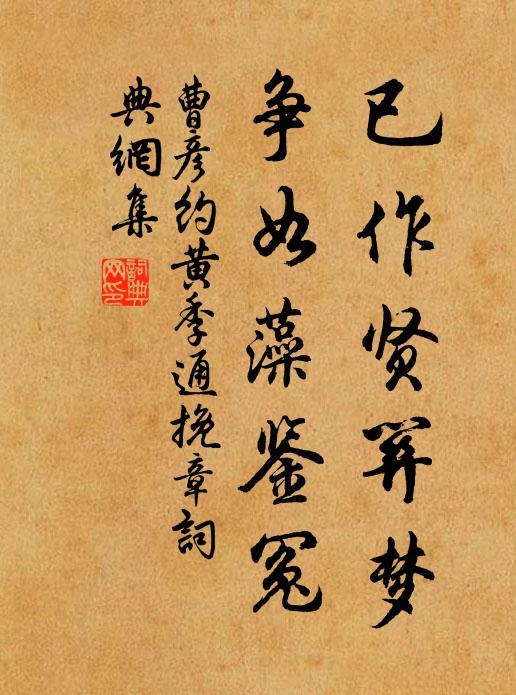 已作贤关梦
争如藻鉴冤
曹彦约黄季通挽章词
典網集
詞典網印